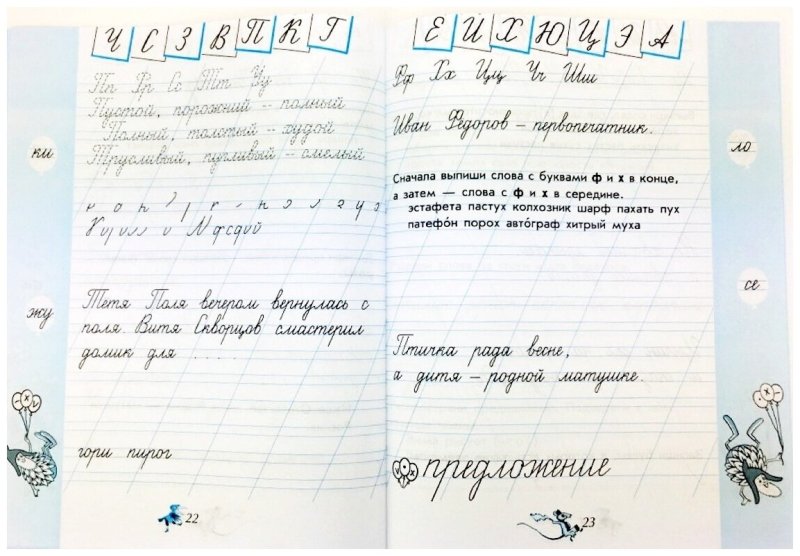 Ч С З В П К Г
Пп Фф Сс Тт Уу
Пустой, порожний – полный
Полный, толстый – худой
Трусливый, пугливый – смелый
ки
Тетя Поля вечером вернулась с
поля Витя Скворцов смастерил
домик для . . . .
жу
гори пирог
22
Е Й Х Ю Ц Э А
Фф Хх Цц Чч Шш
Иван Федоров – первопечатник.
ло
Сначала выпиши слова с буквами ф и х в конце,
а затем — слова с ф и х в середине.
эстафета пастух колхозник шарф пахать пух
патефо́н порох авто́граф хитрый муха
се
Птичка рада весне,
а дитя – родной матушке.
предложение
23